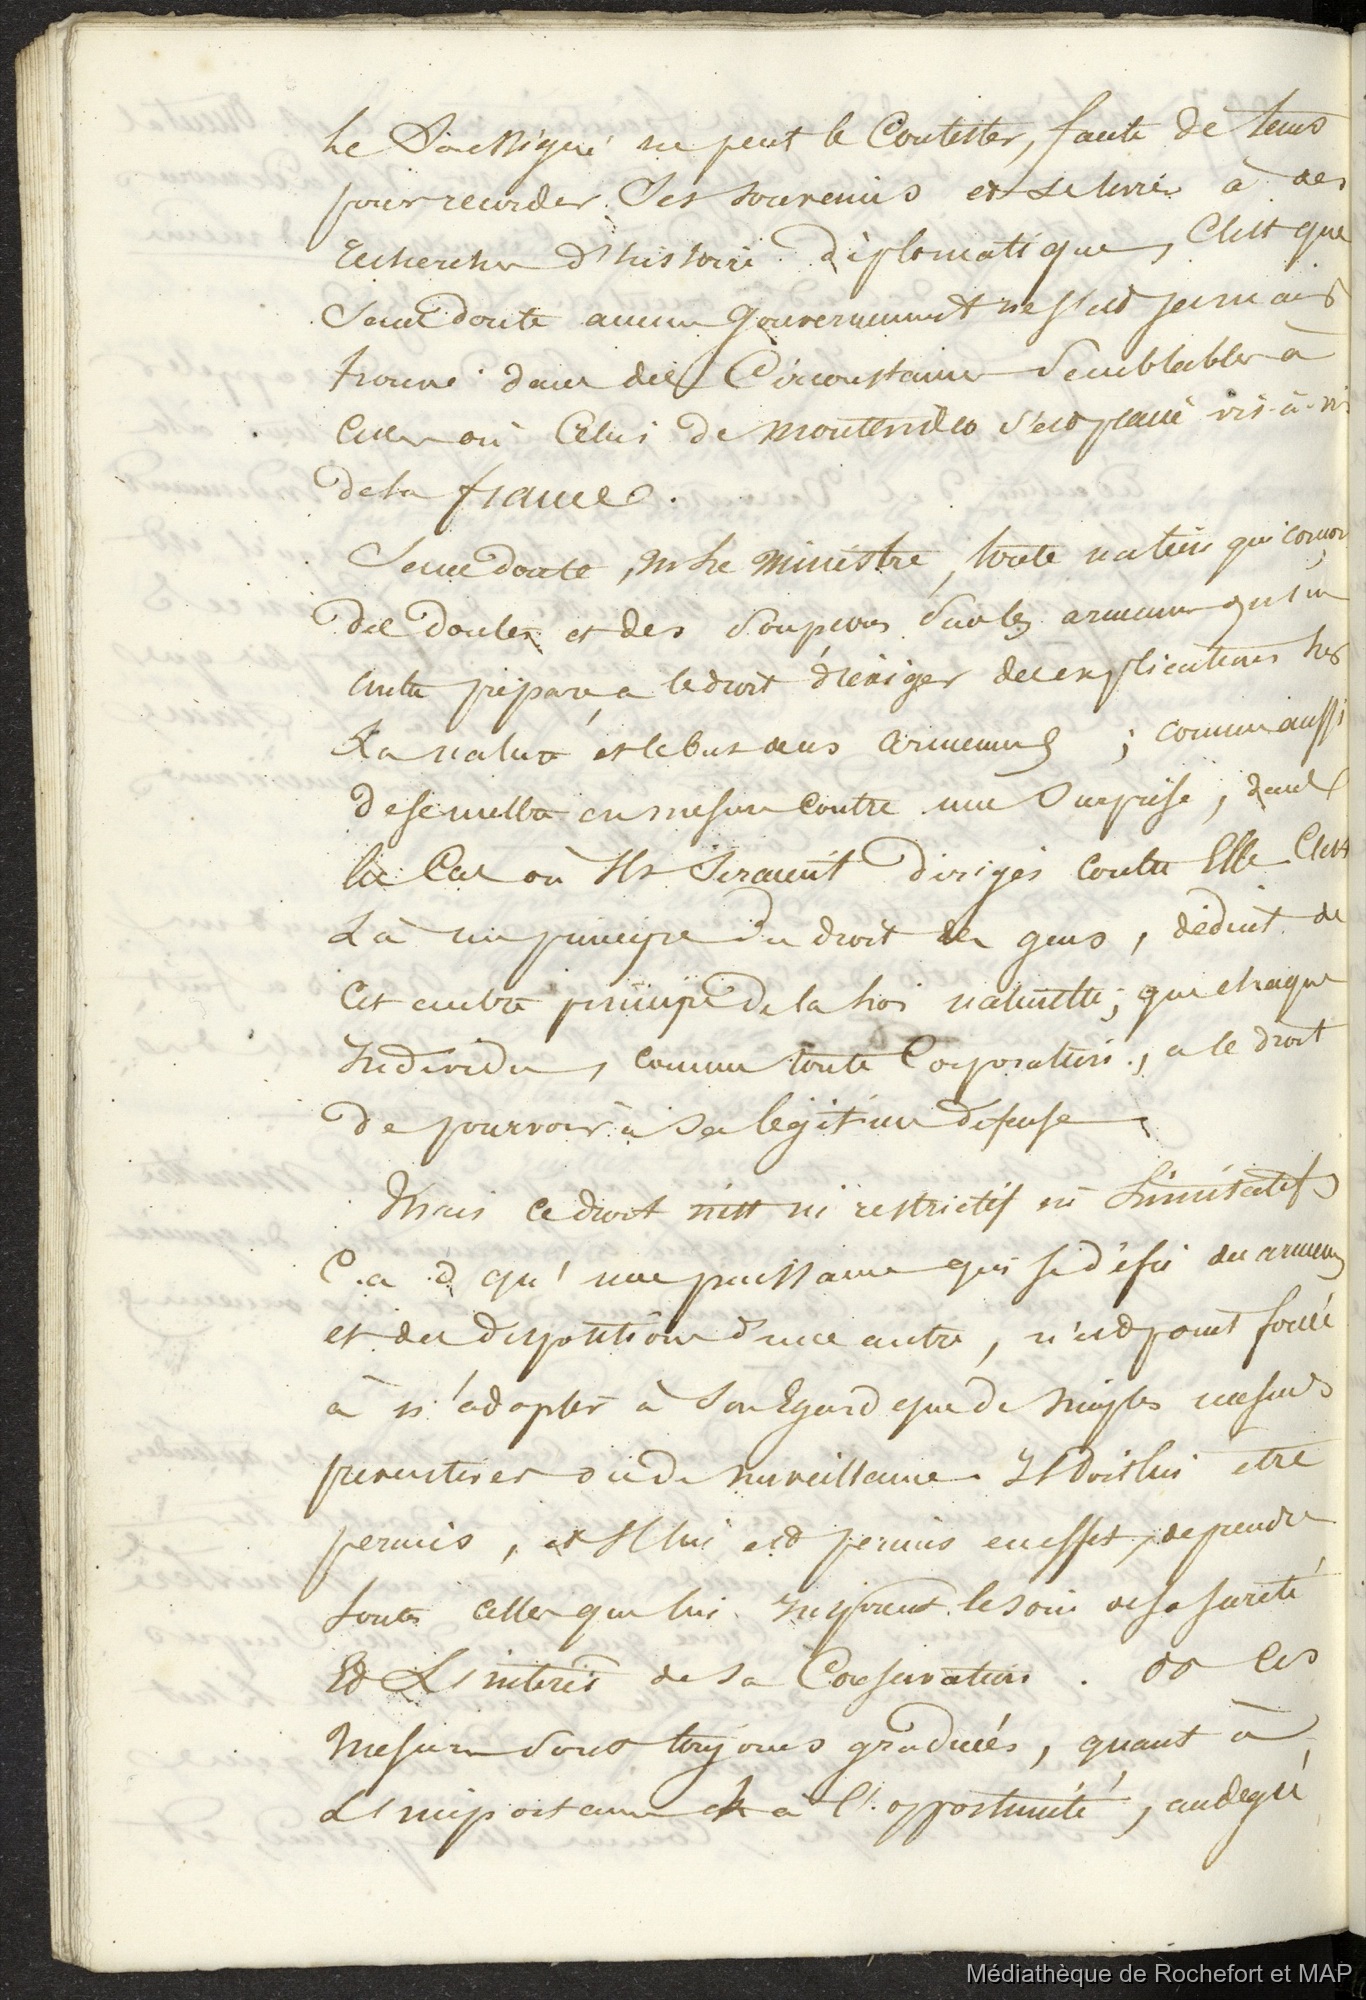 Le Soussigné ne peut le Contester, faute de tems
pour recorder Ses souvenirs et se livrer à des
recherches d'histoire diplomatique, C'est que
Sans doute aucun Gouvernement ne s'est jamais
trouvé dans des Circonstances Semblables à
Celles où Celui de montevideo s'est placé vis-à-vis
de la france.
Sans doute, Mr Le Ministre, toute nation qui conçoit
des doutes et des Soupçons Sur les armemens qu'une
autre prépare, a le droit d'exiger des explications sur
La nature et le but de ces armemens ; comme aussi
de se mettre en mesure contre une Surprise, dans
le Cas où Ils Seraient dirigés contre Elle C'est
Là un principe du droit des gens, déduit de
Cet autre principe de la Loi naturelle ; que chaque
Individu, comme toute Corporation, a le droit
de pourvoir à sa légitime défense.
Mais ce droit n'est ni restrictif ni Limitatif,
C. a. d. qu'une puissance qui se défie des armemens
et des dispositions d'une autre, n'est point forcée
à n'adopter à Son Egard que de simples mesures
préventives ou de surveillance. Il doit lui etre
permis, et Il lui est permis en effet, de prendre
toutes celles que lui Inspirent le soin de sa sureté
Et L'intérêt de sa Conservation. Ces
Mesures Sont toujours graduées, quant à
L'importance et à l'opportunité, au degré